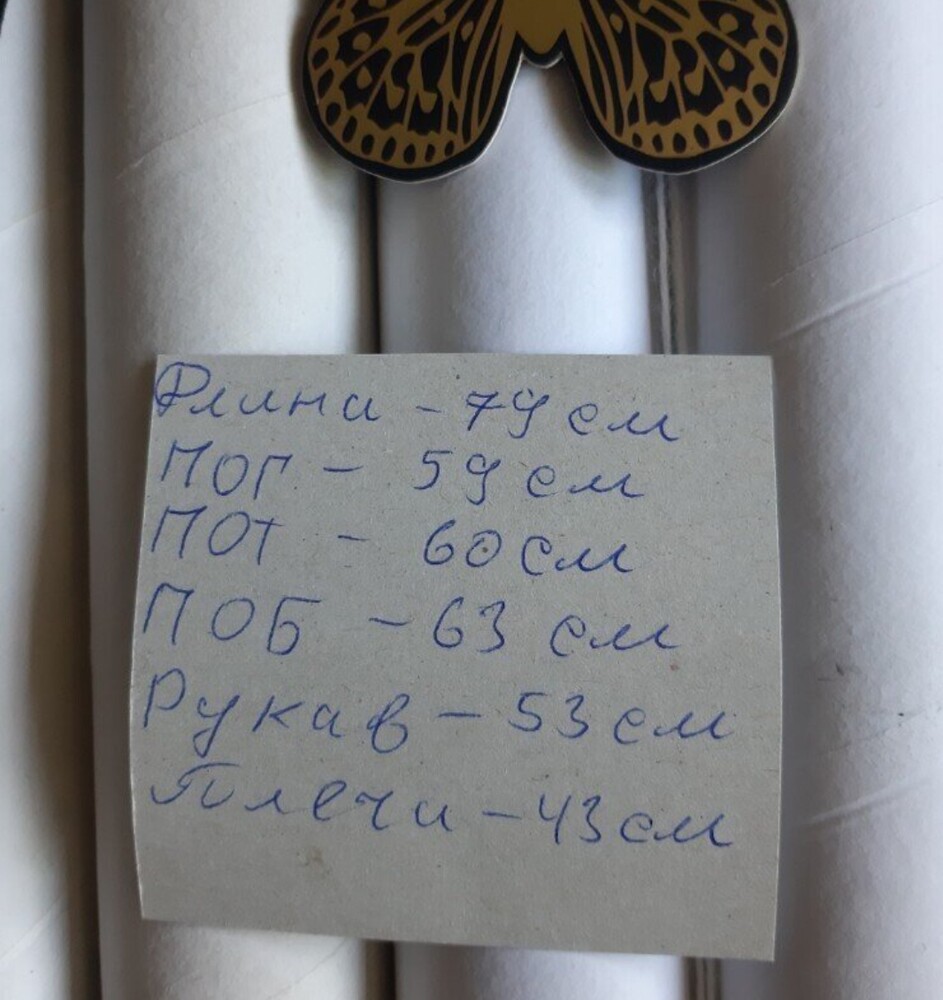 Длина - 79 см
ПОГ - 59 см
ПОТ - 60 см
ПОБ - 63 см
Рукав - 53 см
Плечи - 43 см